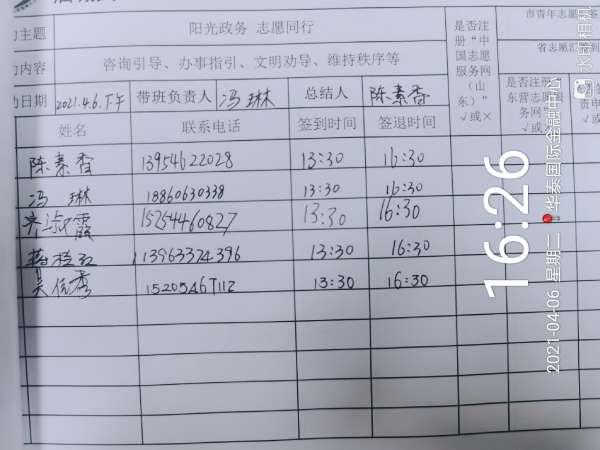 主题 阳光政务 志愿同行
内容 咨询引导、办事指引、文明劝导、维持秩序等
日期 2021.4.6.下午 带班负责人 冯琳 总结人 陈素香
是否注册“中国志愿服务网（山东）”√或×
市青年志愿
省志愿
是否注册
东营志愿服
务网
√或×
姓名 联系电话 签到时间 签退时间
陈素香 13954622028 13:30 16:30
冯琳 18860630338 13:30 16:30
齐淑霞 15254460827 13:30 16:30
13963374396 13:30 16:30
15205467112 13:30 16:30
16:26
2021-04-06 星期二 华泰国际金融中心
水印相机